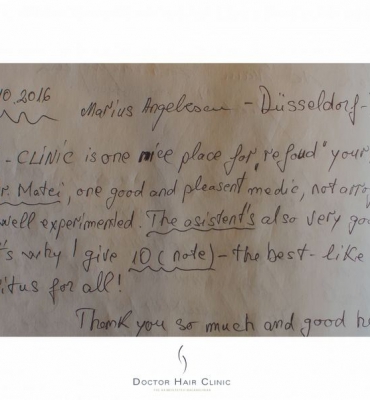 10.2016
Marius Angelescu - Düsseldorf -
- CLiNiC is one nice place for "refound" your
r. Matei, one good and pleasent medic, not arro
well experimented. The asistent's also very goo
's why I give 10 (note) - the best - like
itus for all!
Thank you so much and good
DOCTOR HAIR CLINIC